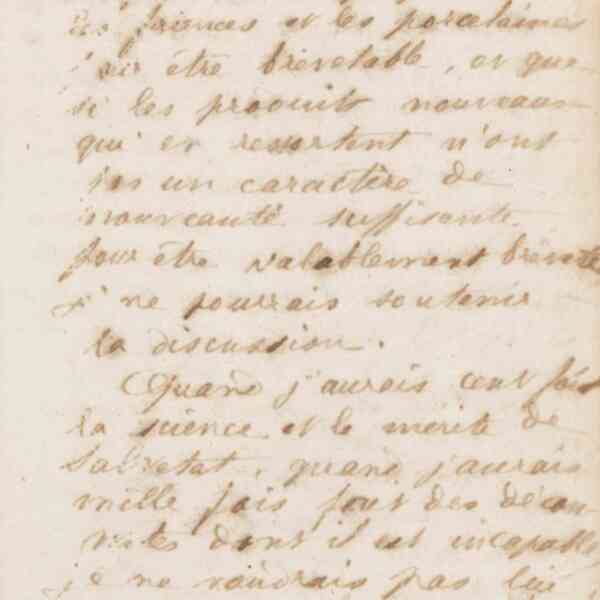 les faiences et les porcelaines
être brevetable, et que
si les produits nouveaux
qui en ressortent n'ont
pas un caractère de
nouveauté suffisante
pour être valablement breveté
je ne pourrais soutenir
la discussion.
Quand j'aurais cent fois
la science et le mérite de
Salvetat, quand j'aurais
mille fois fait des décou-
vertes dont il est incapable
je ne voudrais pas lui